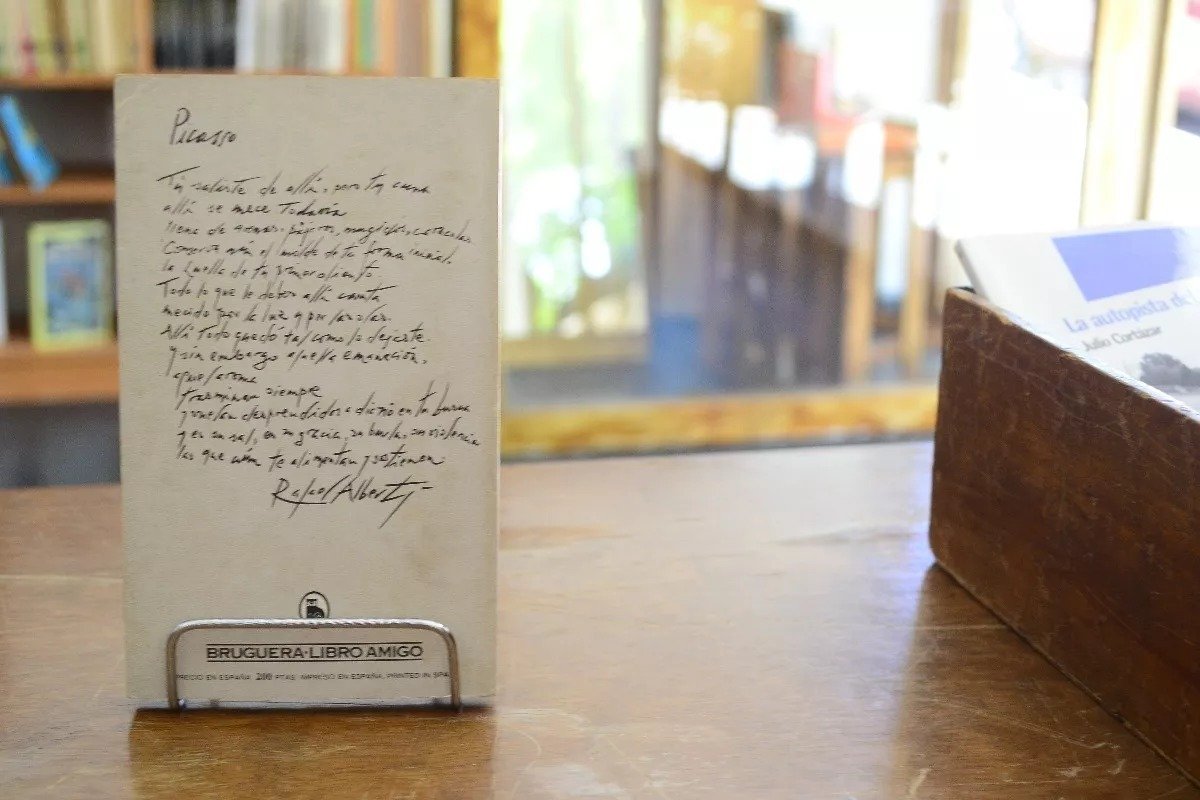 Picasso
Tú saliste de allí, pero tu cuna
allí se mece todavía
llena de arenas, pájaros, mugidos, caracolas.
Conserva aún el molde de tu forma inicial,
la huella de tu
Todo lo que te dieron allí canta,
mecido por la luz y por las olas.
Allí todo quedó tal como lo dejaste
y sin embargo aquella emanación,
aquel aroma
trasminan siempre
vuelan desprendidos a diario en tu busca
y es su sal, es su gracia, su burla, su violencia
las que aún te alimentan y sostienen.
Rafael Alberti
BRUGUERA·LIBRO AMIGO
PRECIO EN ESPAÑA 200 PTAS. IMPRESO EN ESPAÑA. PRINTED IN SPA
La autopista de
Julio Cortázar